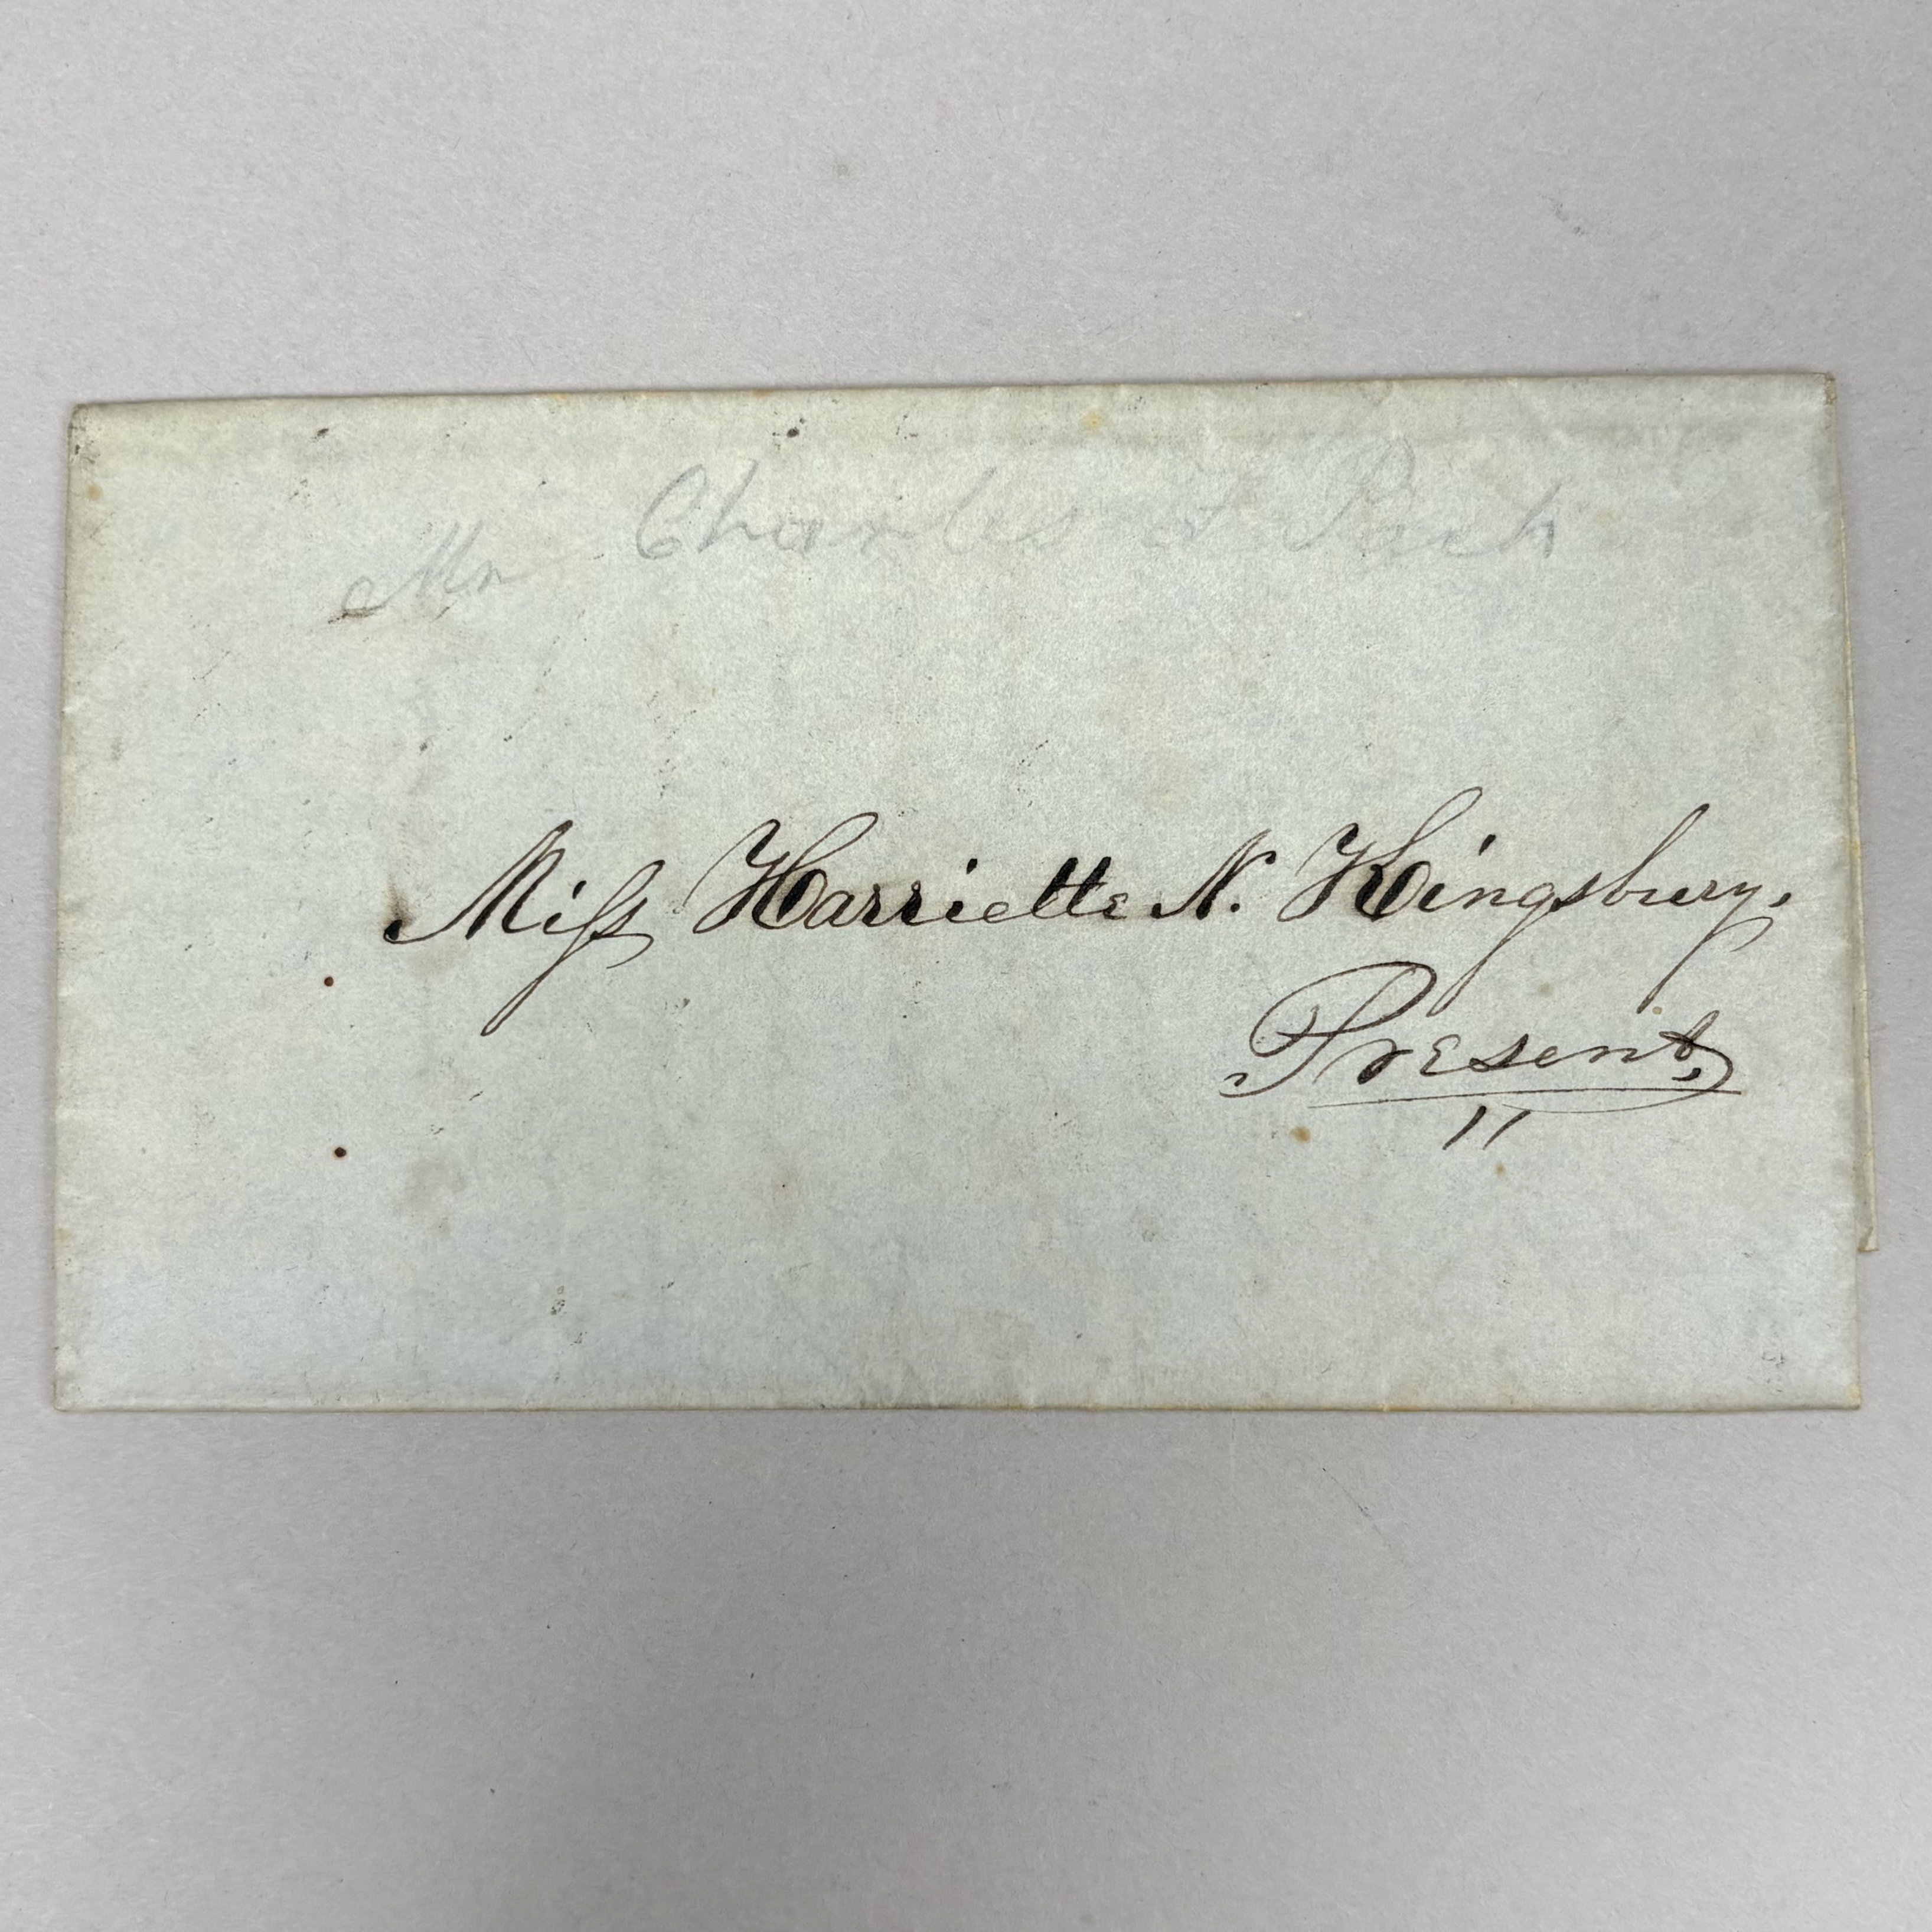 Mr Charles
Miss Harriette N. Kingsbury.
Present.